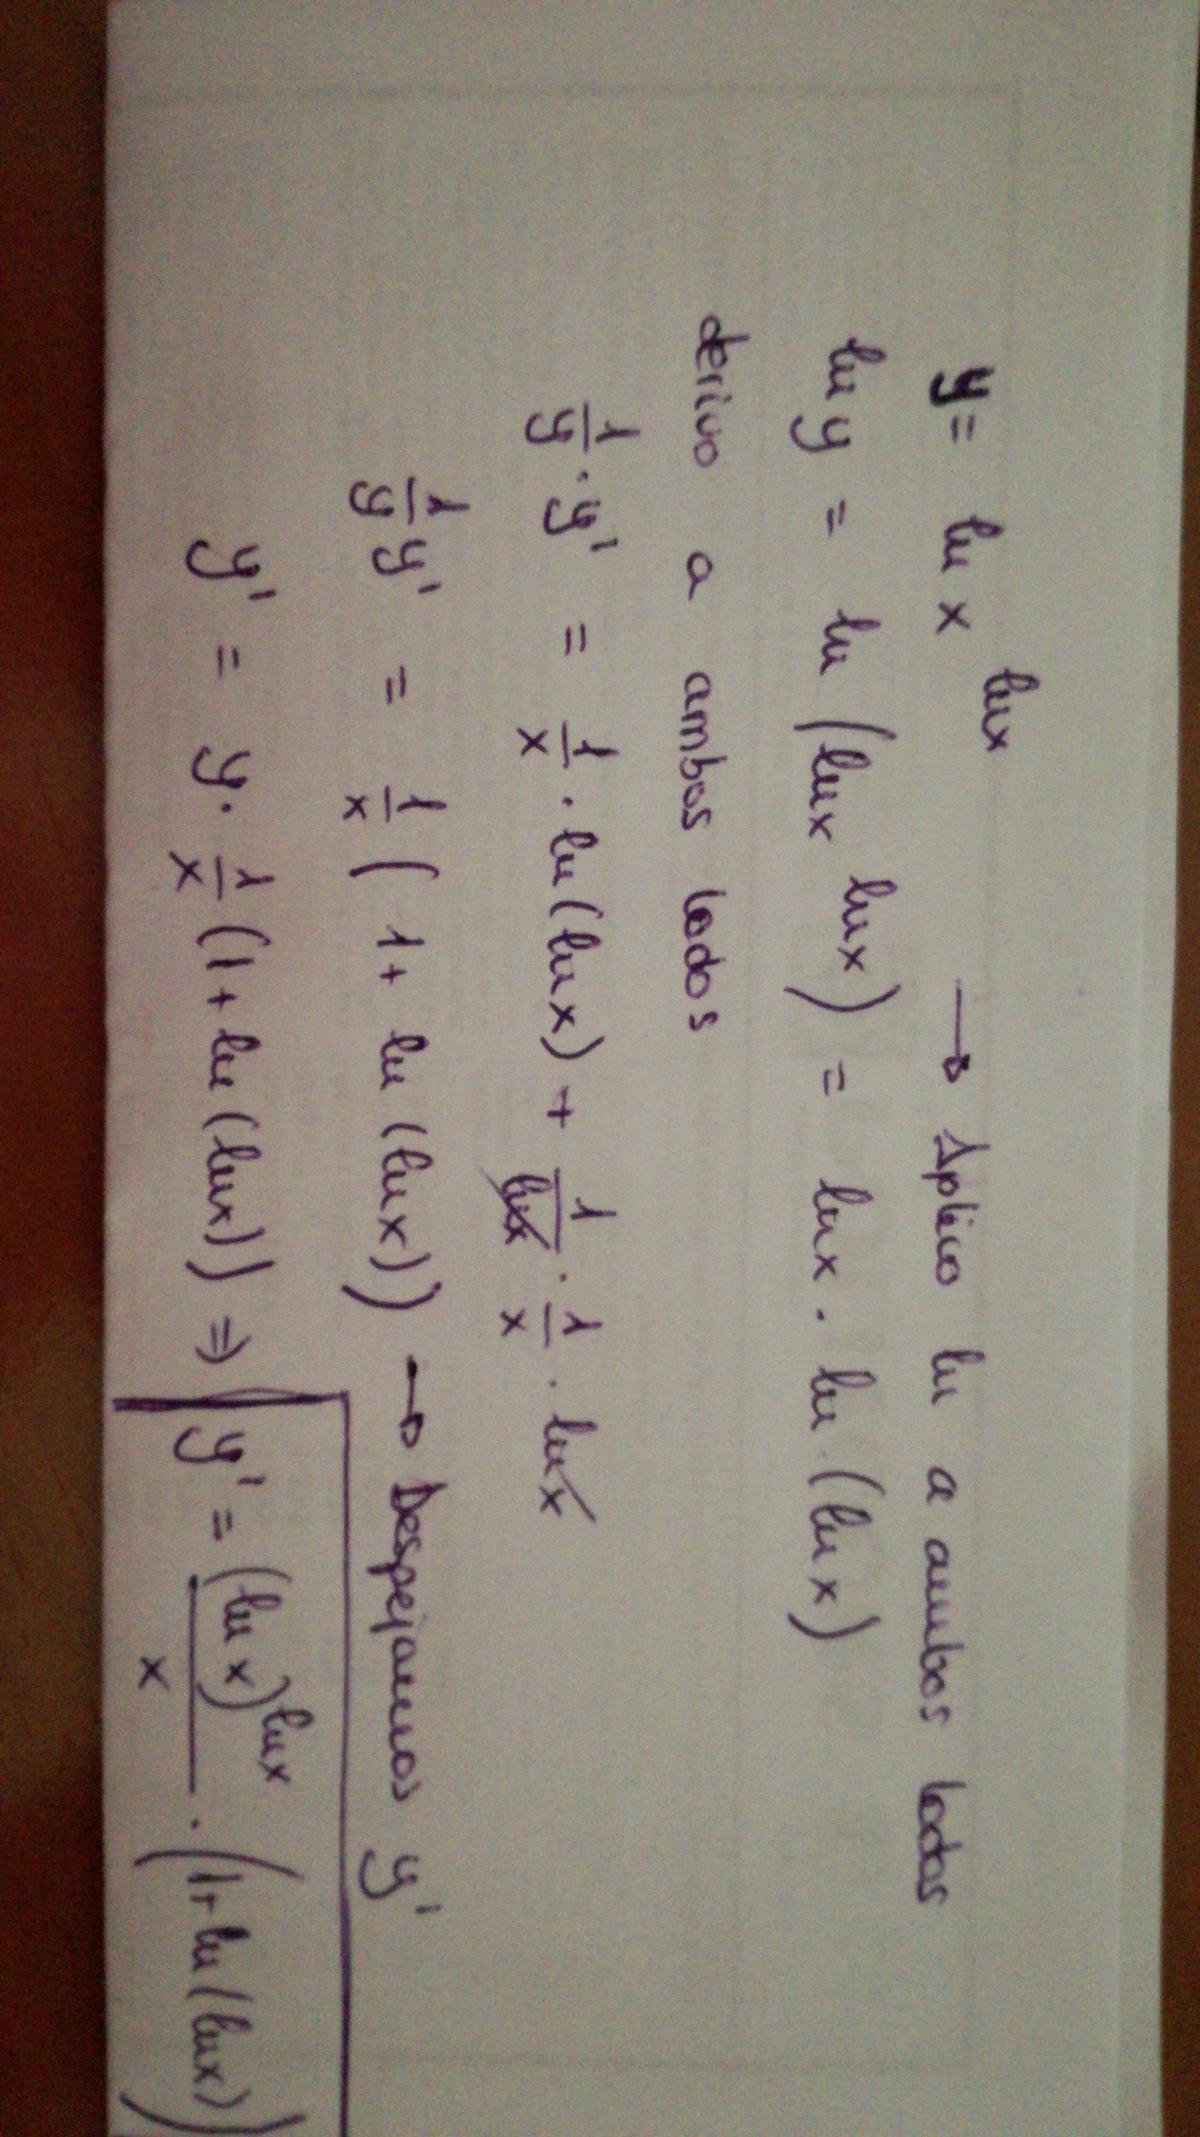 y = ln x ^ ln x → Aplico ln a ambos lados
ln y = ln (ln x ^ ln x) = ln x · ln (ln x)
derivo a ambos lados
1/y · y' = 1/x · ln (ln x) + 1/ln x · 1/x · ln x
1/y y' = 1/x (1 + ln (ln x)) → Despejamos y'
y' = y · 1/x (1 + ln (ln x)) ⇒ y' = (ln x)^ln x / x · (1 + ln (ln x))